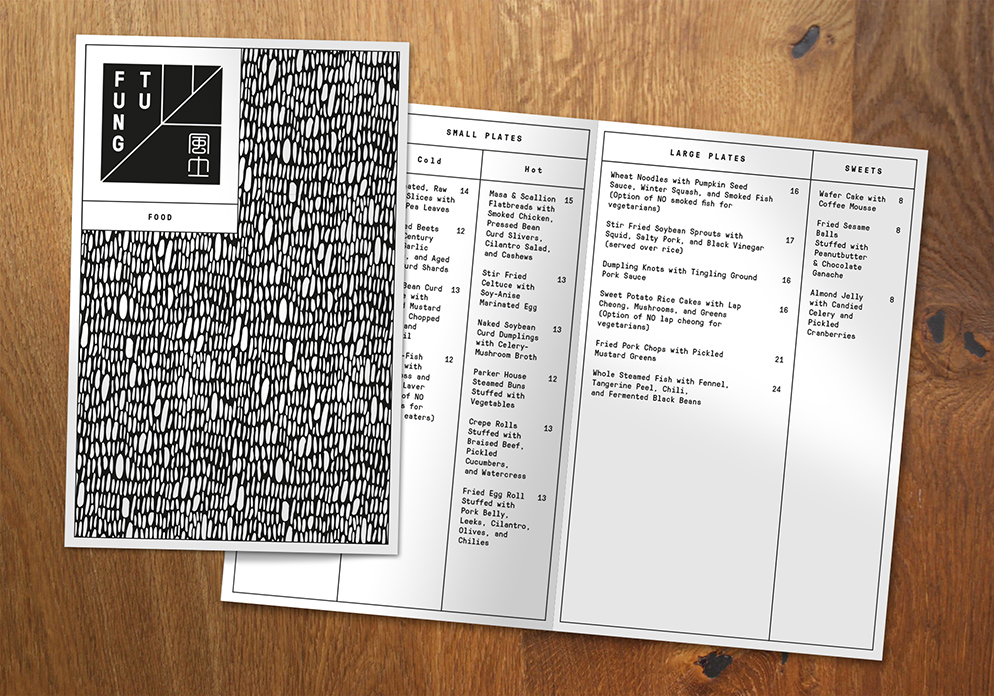 FUNG
TU
風土
FOOD
SMALL PLATES
Cold
ated, Raw 14
Slices with
Pea Leaves
ed Beets 12
entury
arlic
, and Aged
urd Shards
Bean Curd 13
e with
Mustard
Chopped
and
il
-Fish 12
with
ss and
Laver
of NO
s for
eaters)
Hot
Masa & Scallion 15
Flatbreads with
Smoked Chicken,
Pressed Bean
Curd Slivers,
Cilantro Salad,
and Cashews
Stir Fried 13
Celtuce with
Soy-Anise
Marinated Egg
Naked Soybean 13
Curd Dumplings
with Celery-
Mushroom Broth
Parker House 12
Steamed Buns
Stuffed with
Vegetables
Crepe Rolls 13
Stuffed with
Braised Beef,
Pickled
Cucumbers,
and Watercress
Fried Egg Roll 13
Stuffed with
Pork Belly,
Leeks, Cilantro,
Olives, and
Chilies
LARGE PLATES
Wheat Noodles with Pumpkin Seed 16
Sauce, Winter Squash, and Smoked Fish
(Option of NO smoked fish for
vegetarians)
Stir Fried Soybean Sprouts with 17
Squid, Salty Pork, and Black Vinegar
(served over rice)
Dumpling Knots with Tingling Ground 16
Pork Sauce
Sweet Potato Rice Cakes with Lap 16
Cheong, Mushrooms, and Greens
(Option of NO lap cheong for
vegetarians)
Fried Pork Chops with Pickled 21
Mustard Greens
Whole Steamed Fish with Fennel, 24
Tangerine Peel, Chili,
and Fermented Black Beans
SWEETS
Wafer Cake with 8
Coffee Mousse
Fried Sesame 8
Balls
Stuffed with
Peanutbutter
& Chocolate
Ganache
Almond Jelly 8
with Candied
Celery and
Pickled
Cranberries